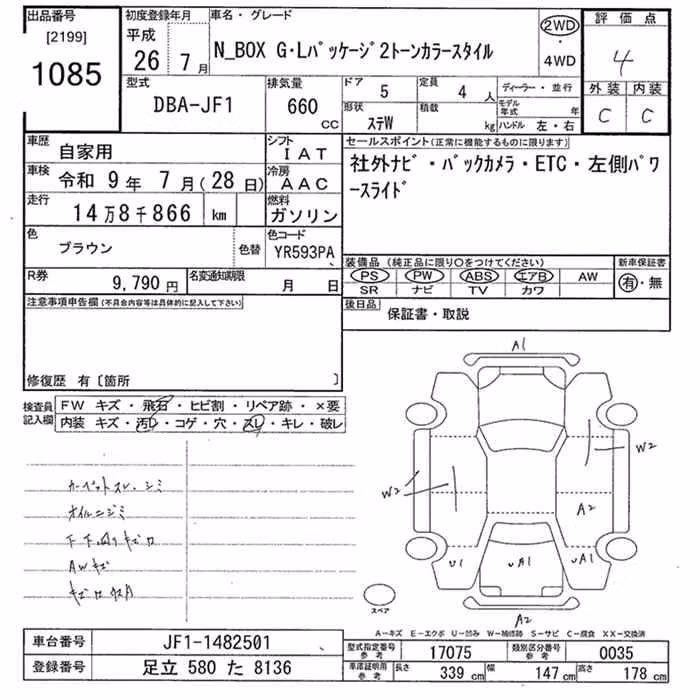 出品番号
[2199]
1085
初度登録年月
平成
26 7 月
車名・グレード
N_BOX G・Lパッケージ2トーンカラースタイル
2WD
・
4WD
評価点
4
外装 内装
C C
型式
DBA-JF1
排気量
660 CC
ドア 5
定員 4 人
形状 ステW
積載 kg
ディーラー・並行
モデル年式 年
ハンドル 左・右
車歴 自家用
シフト IAT
車検 令和 9年 7月(28日)
冷房 AAC
走行 14万8千866 km
燃料 ガソリン
色 ブラウン
色替
色コード YR593PA
R券 9,790 円
名変通知期限 月 日
セールスポイント(正常に機能するものに限ります)
社外ナビ・バックカメラ・ETC・左側パワ
ースライド
装備品 (純正品に限り○をつけてください)
新車保証書
PS PW ABS エアB AW
SR ナビ TV カワ
有・無
後日品
保証書・取説
注意事項申告欄(不具合内容等は具体的に記入して下さい)
修復歴 有〔箇所 〕
検査員記入欄
FW キズ・飛石・ヒビ割・リペア跡・×要
内装 キズ・汚レ・コゲ・穴・スレ・キレ・破レ
カーペットスレ、シミ
オイルニジミ
下下回りキズ
AWキズ
A1
W2
W2
A2
U1
UA1
UA1
A2
スペア
A-キズ E-エクボ U-凹み W-補修跡 S-サビ C-腐食 XX-交換済
車台番号 JF1-1482501
登録番号 足立 580 た 8136
型式指定番号 参考 17075
類別区分番号 参考 0035
車庫証明用 参考
長さ 339 cm
幅 147 cm
高さ 178 cm